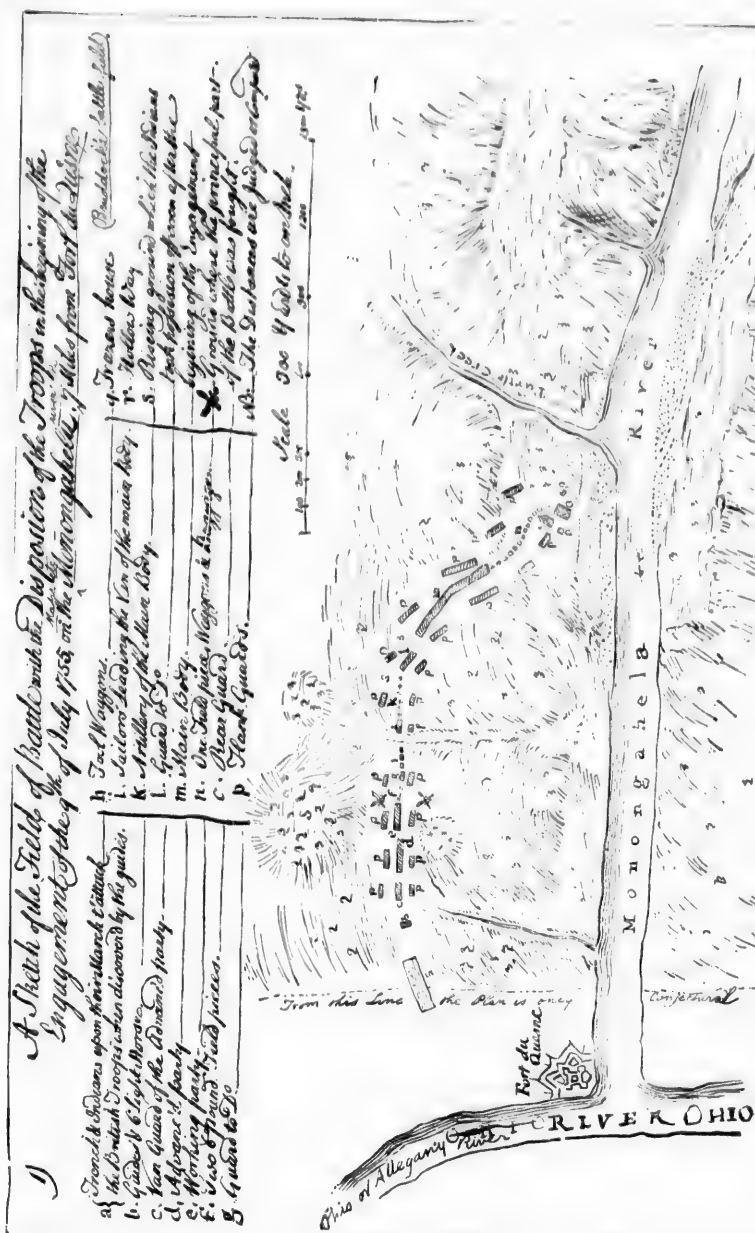 1)
A Sketch of the Field of Battle with the Disposition of the Troops in the beginning of the
Engagement of the 9th of July 1755, on the Monongahela, 7 Miles from Fort du Quesne
(Braddock's battle field)
a{ French & Indians upon their March t'attack
the British Troops when discovered by the guides.
b. Guides & 6 light Horse
c. Van Guard of the Advanc'd Party
d. Advanc'd party
e. Working party
f. Two 6 pound Field pieces.
g. Guard to Do
h. Tool Waggons.
i. Sailors leading the Van of the main Body
k. Artillery of the Main Body.
l. Guard to Do
m. Main Body.
n. One Field piece, Waggons &
o. Rear Guard
p. Flank Guards.
q. Frasers house
r. Hollow Way
s. Rising ground which the Indians
took possession of soon after the
beginning of the engagement
Ground where the principal part
of the Battle was fought.
NB. The Distances are judged or Computed
Scale 300 Yards to one Inch.
Turtle Creek
Monongahela River
From this Line the Plan is only Conjectural
Fort du Quesne
Ohio or Allegany River
RIVER OHIO